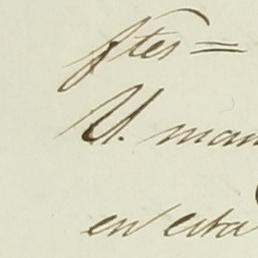 ftes =
U. man
en esta